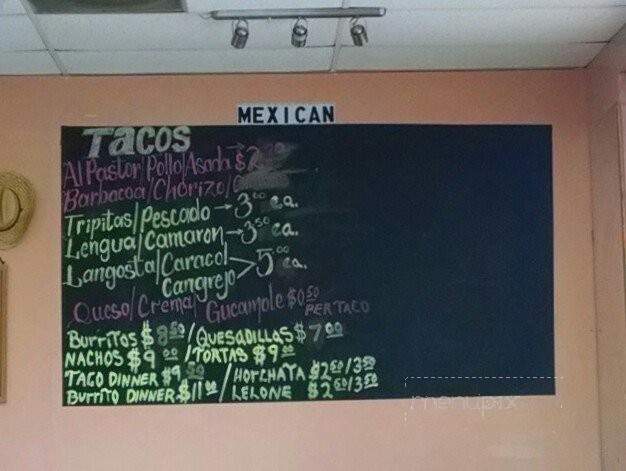 MEXICAN
Tacos
Al Pastor/Pollo/Asada → $2
Barbacoa/Chorizo/
Tripitas/Pescado → 3.00 ea.
Lengua/Camaron → 3.50 ea.
Langosta/Caracol
Cangrejo > 5.00 ea.
Queso/Crema/Gucamole $0.50
PER TACO
Burritos $8.50 / QUESADILLAS $7.00
NACHOS $9.00 / TORTAS $9.00
TACO DINNER $9.50 / HORCHATA $2.50/3.50
BURRITO DINNER $11.00 / LELONE $2.50/3.50
menupix